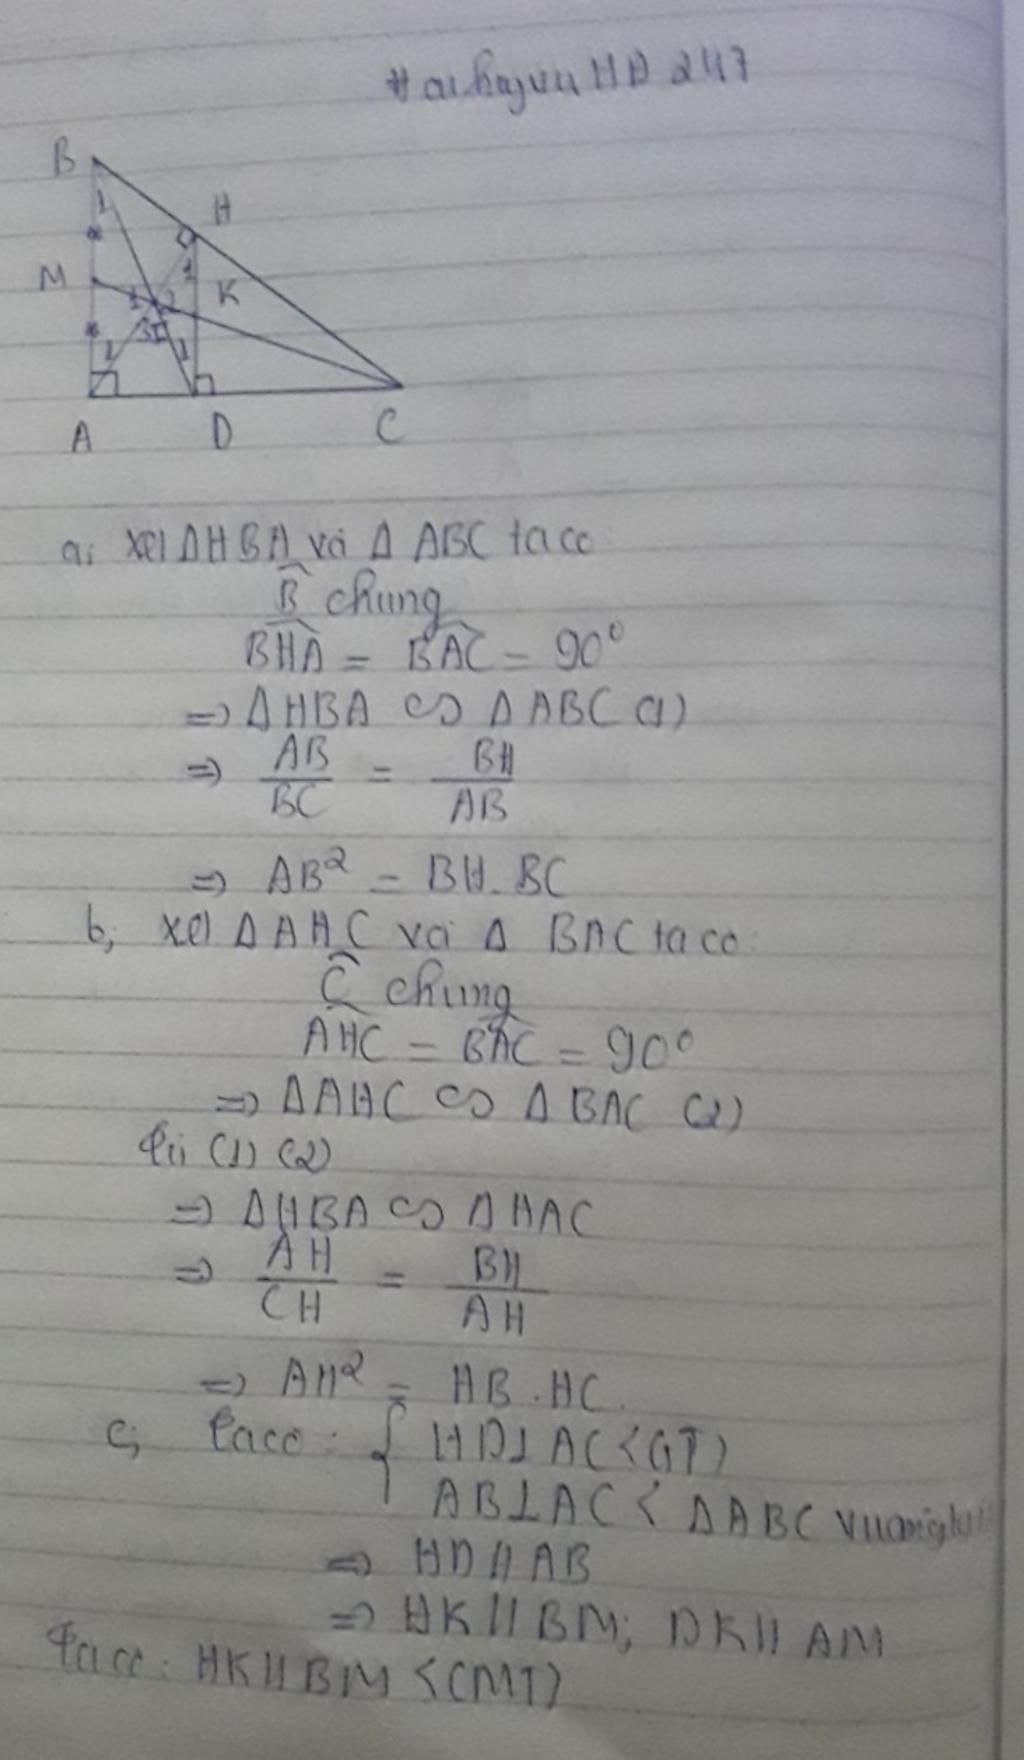 B
H
M
K
A D C
a; xét ΔHBA và Δ ABC ta có
B̂ chung
BHA = BAC = 90°
=> ΔHBA ∽ ΔABC (1)
=> AB/BC = BH/AB
=> AB² = BH.BC
b; xét ΔAHC và Δ BAC ta có:
Ĉ chung
AHC = BAC = 90°
=> ΔAHC ∽ ΔBAC (2)
Từ (1) (2)
=> ΔHBA ∽ ΔHAC
=> AH/CH = BH/AH
=> AH² = HB.HC
c; Ta có: { HD⊥AC <GT)
AB⊥AC < ΔABC vuông
=> HD // AB
=> HK // BM; DK // AM
Ta có: HK // BM <CMT)